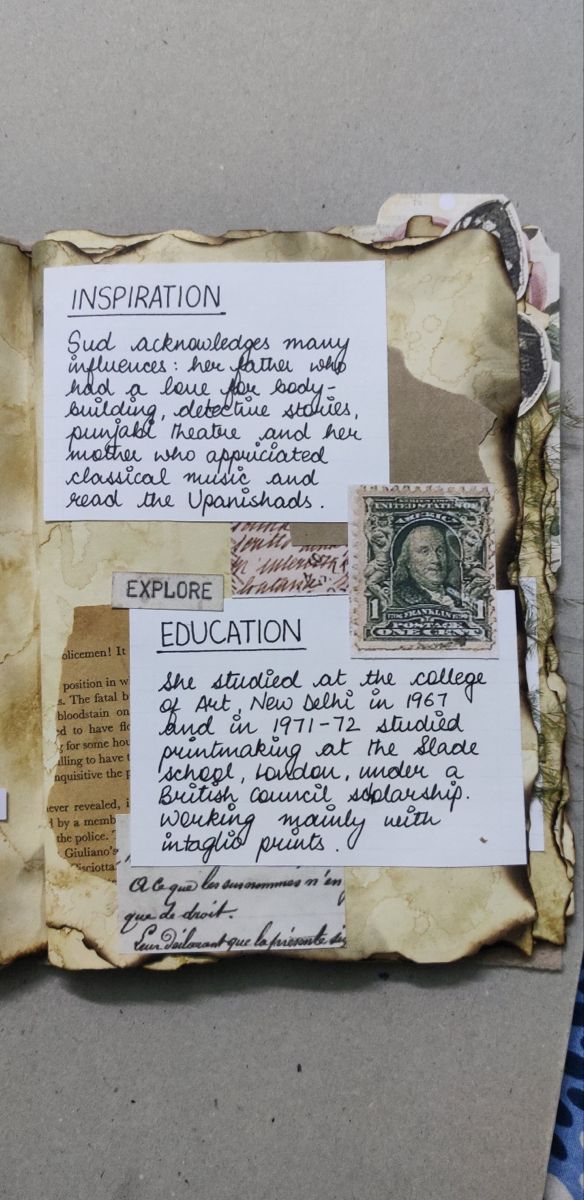 INSPIRATION
Sud acknowledges many
influences : her father who
had a love for body-
building, detective stories,
punjabi theatre and her
mother who appriciated
classical music and
read the Upanishads .
UNITED STATES OF
AMERICA
1 FRANKLIN 1
POSTAGE
ONE CENT
EXPLORE
EDUCATION
She studied at the college
of Art, New Delhi in 1967
and in 1971-72 studied
printmaking at the Slade
school, London, under a
British Council scholarship.
Working mainly with
intaglio prints .
olicemen! It
position in w
s. The fatal b
bloodstain on
ed to have fl
g for some hou
lling to have t
nquisitive the p
ever revealed, i
l by a memb
the police.
Giuliano's
Sciotta
A Ce que les surnommés n'en
que de droit.
Leur déclarant que la présente